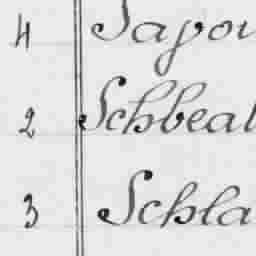 4 Sapou
2 Schbeat
3 Schla